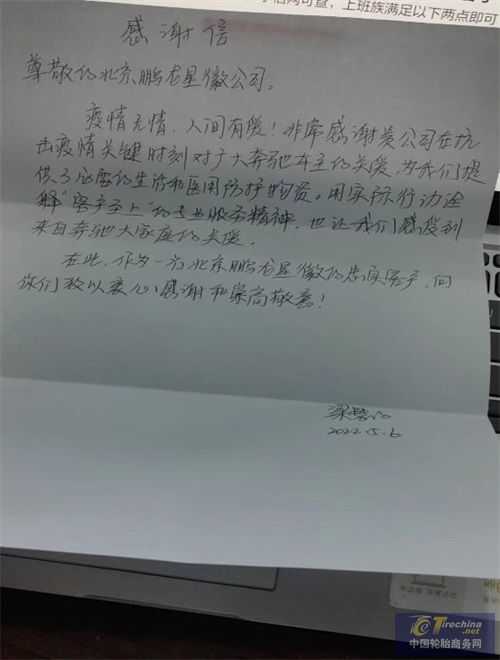 上班族满足以下两点即可
感谢信
尊敬的北京鹏龙星徽公司。
疫情无情,人间有爱!非常感谢贵公司在抗
击疫情关键时刻对广大奔驰车主的关爱,为我们提
供了必要的生活和医用防护物资。用实际行动诠
释"客户至上"的专业服务精神,也让我们感受到
来自奔驰大家庭的关爱。
在此,作为一名北京鹏龙星徽的忠实客户,向
你们致以衷心感谢和崇高敬意!
梁慧
2022.5.6
Tirechina
.net
中国轮胎商务网